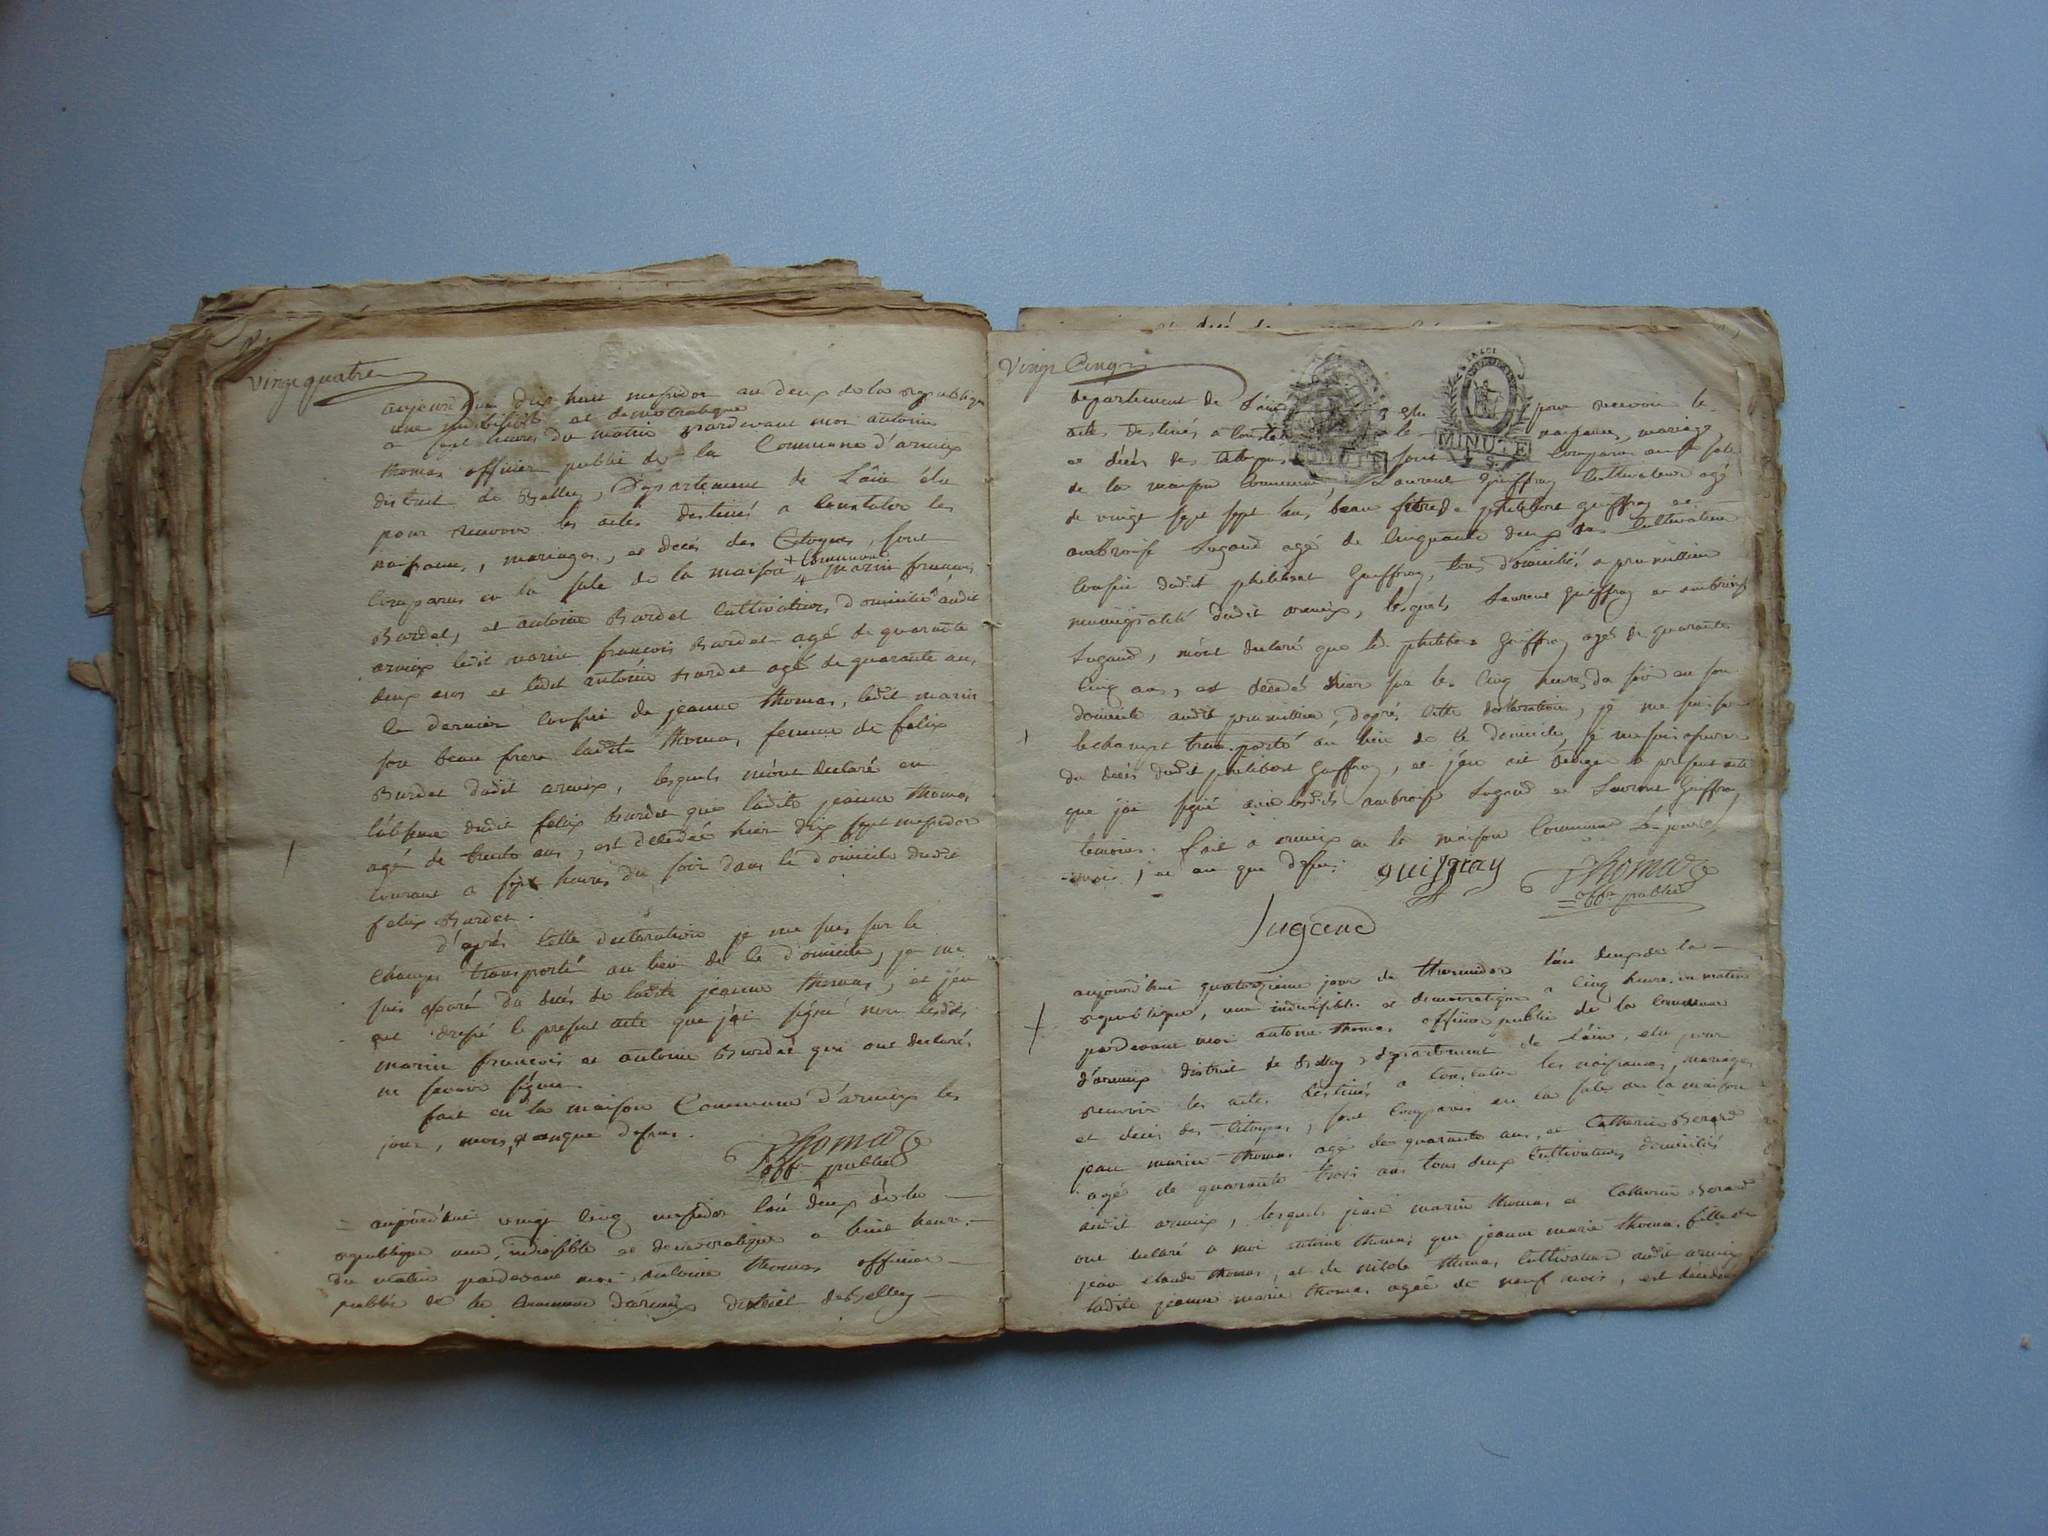 vingt quatre
aujourd'hui dix huit messidor an deux de la republique
une indivisible et democratique
a sept heures du matin pardevant moi antoine
thomas officier public de la Commune d'arvieux
district de Belley, Département de L'âin élu
pour recevoir les actes destinés a Constater les
naissances, mariages, et decés des Citoyens, sont
Comparus en la sale de la maison Commune marin francois
Burdet, et antoine Burdet Cultivateurs domiciliés audit
ledit marin francois Burdet agé de quarante
deux ans et ledit antoine Burdet agé de quarante ans,
le dernier Cousin de jeanne thomas, ledit marin
son beau frere ladite thomas, femme de felix
Burdet dudit lesquels m'ont declaré en
l'absence dudit felix Burdet que ladite jeanne thomas
agé de trente ans, est decedée hier dix sept messidor
Courant a sept heures du soir dans le domicile dudit
felix Burdet.
d'aprés Cette declaration je me suis sur le
Champs transporté au lieu de le domicile, je me
suis assuré du decés de ladite jeanne thomas, et j'en
ai dressé le present acte que j'ai signé non lesdits
marin francois et antoine Burdet qui ont declarés
ne savoir signer
fait en la maison Commune les
jour, mois, et an que dessus.
Thomas
offr public
= aujourd'hui vingt cinq messidor l'an deux de la
republique une, indivisible et democratique a huit heures
du matin pardevant moi antoine thomas officier
public de la Commune district de Belley
Vingt Cinq
departement de L'ain elu pour recevoir les
actes destinés a Constater les naissances, mariages
et décés des Citoyens sont Comparus en la sale
de la maison Commune, Laurent Guiffray Cultivateur agé
de vingt sept ans, beau frere de philibert guiffray et
ambroise Sugand agé de Cinquante deux ans Cultivateur
Cousin dudit philibert Guiffray, tous domiciliés a premillieu
municipalité dudit lesquels Laurent Guiffray et ambroise
Sugand, m'ont declaré que le philibert Guiffray agé de quarante
Cinq ans, est decedés hier sur les Cinq heures du soir en son
domicile audit premillieu, d'aprés Cette déclaration, je me suis sur
lechamps transporté au lieu de le domicile, je me suis assuré
du decés dudit philibert Guiffray, et j'en ait redigé le present acte
que j'ai signé avec lesdits ambroise Sugand et Laurent Guiffray
temoins. fait a en la maison Commune Les jour
mois, et an que dessus. guiffray Thomas
offr public
Sugand
aujourd'hui quatorzieme jour de thermidor l'an deux de la
republique, une indivisible et democratique a Cinq heures du matin
pardevant moi antoine thomas officier public de la Commune
district de Belley, departement de L'ain, elu pour
recevoir les actes destinés a Constater les naissances, mariages
et decés des Citoyens, sont Comparus en la sale de la maison
jean marin thomas agé de quarante ans, et Catherine Berard
agé de quarante trois ans tous deux Cultivateurs domiciliés
audit lesquels jean marin thomas et Catherine Berard
ont declaré a moi antoine thomas que jeanne marie thomas fille de
jean claude thomas, et de thomas Cultivateur audit
ladite jeanne marie thomas agée de neuf mois, est décédée
MINUTE
MINUTE